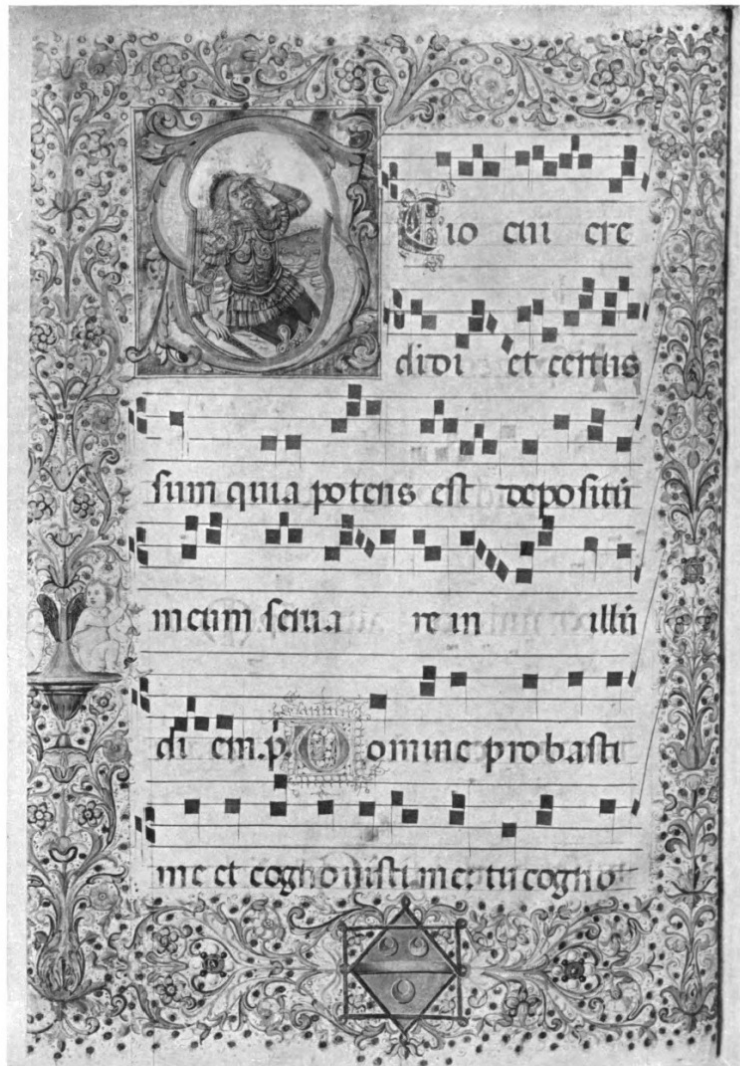 Scio cui cre
didi et certus
sum quia potens est depositū
meum serua re in illū
di em. p̄. Domine probasti
me et cognouisti me: tu cogno